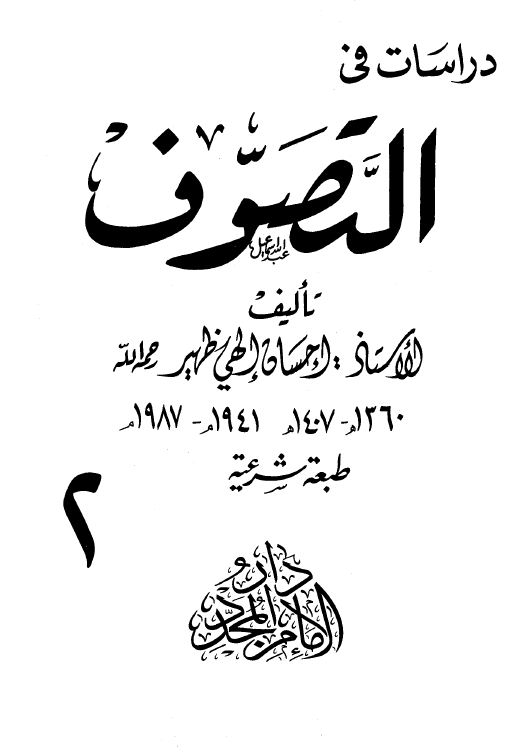 دراسات في
التصوّف
عبدالله اسماعيل
تأليف
الأستاذ: إحسان إلهي ظهير رحمه الله
١٣٦٠هـ - ١٤٠٧هـ ١٩٤١م - ١٩٨٧م
طبعة شرعية
٢
دار
الإمام المجدد